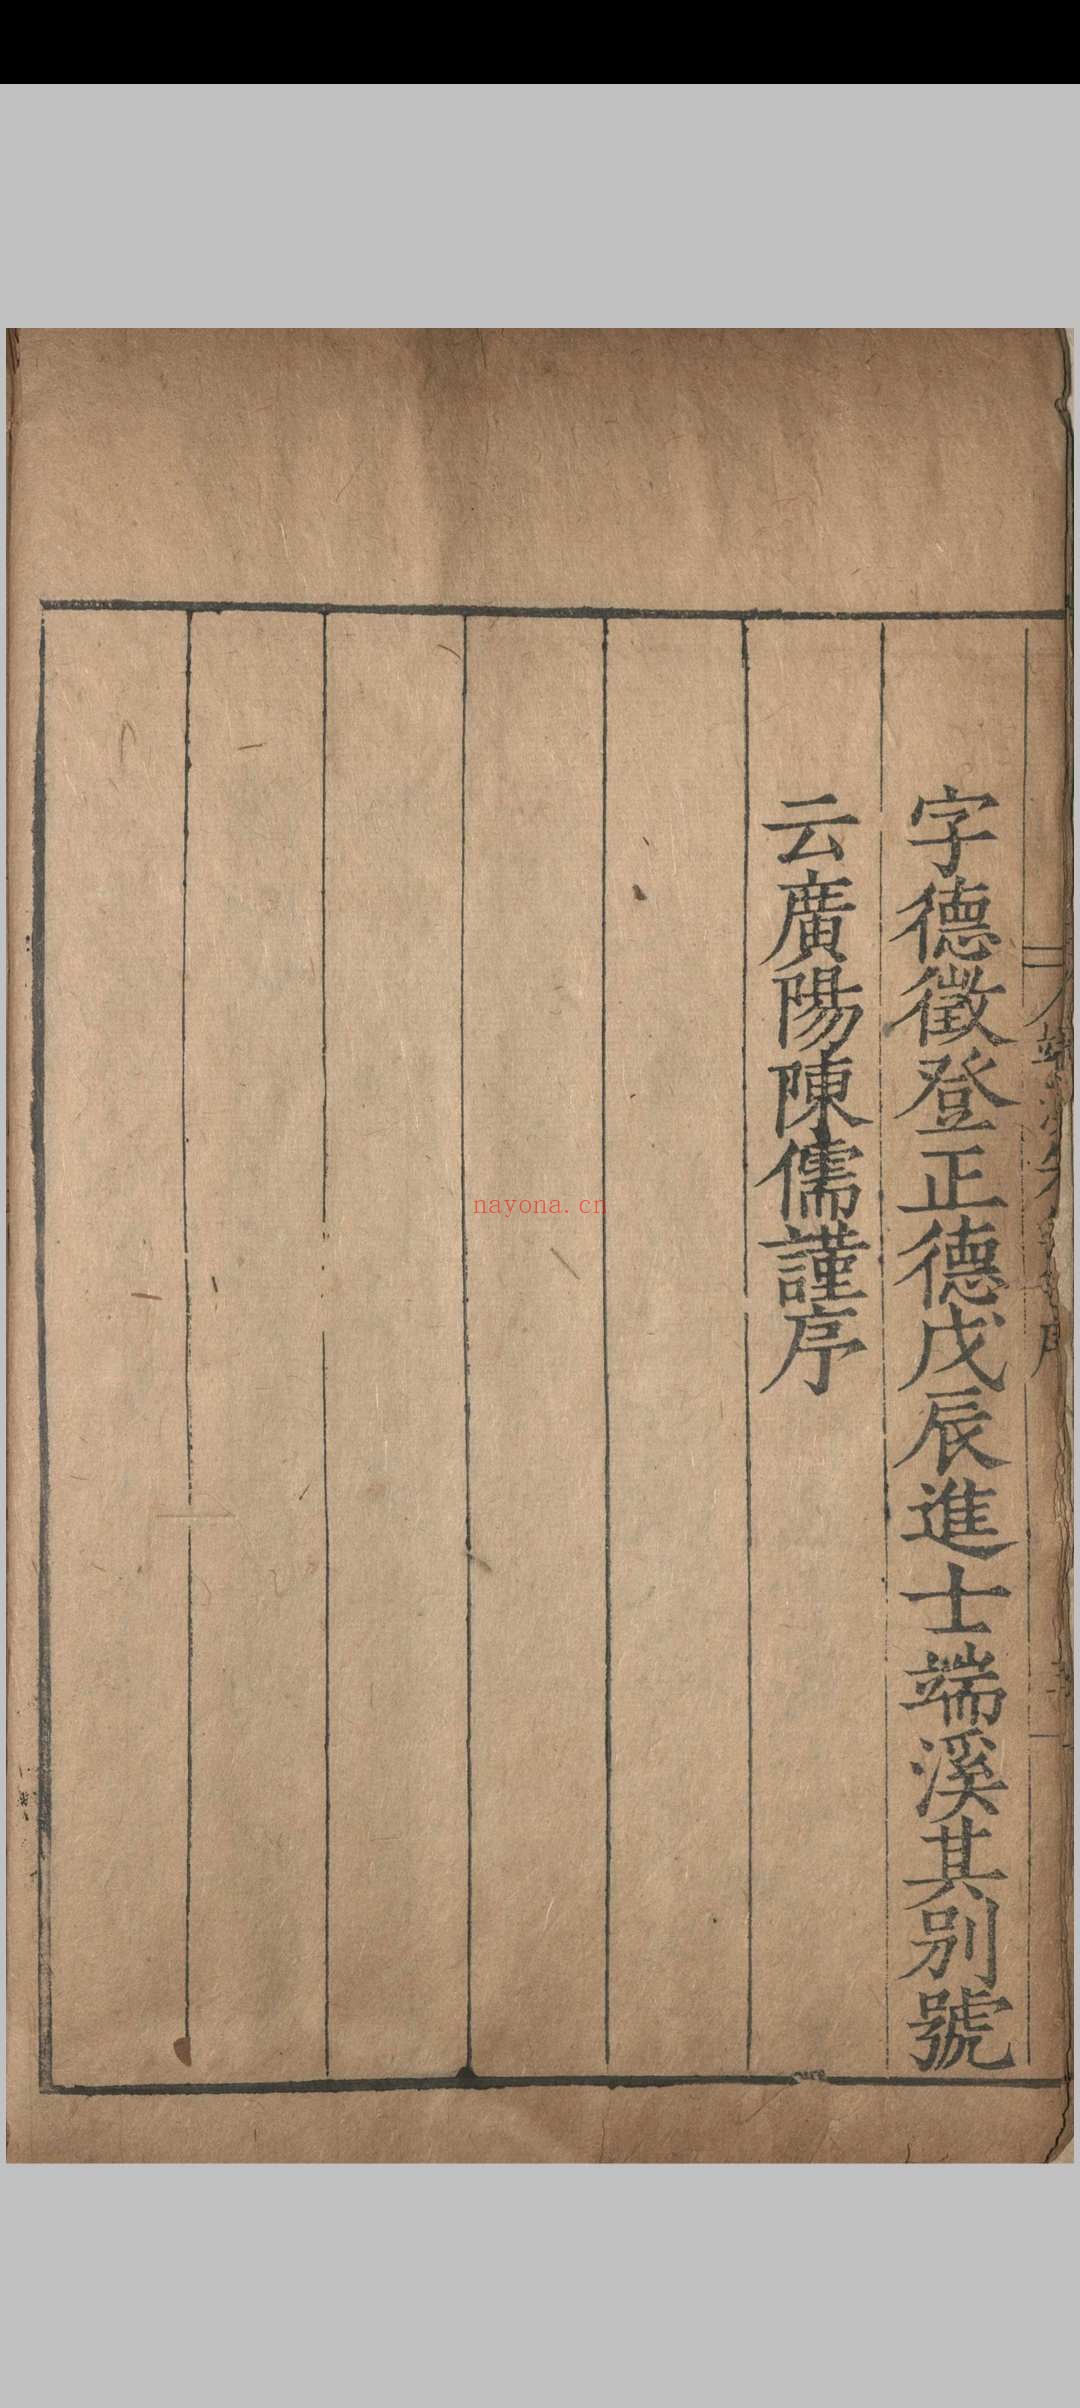 字德徵登正德戊辰進士端溪其别號
云廣陽陳儒謹序
nayona.cn